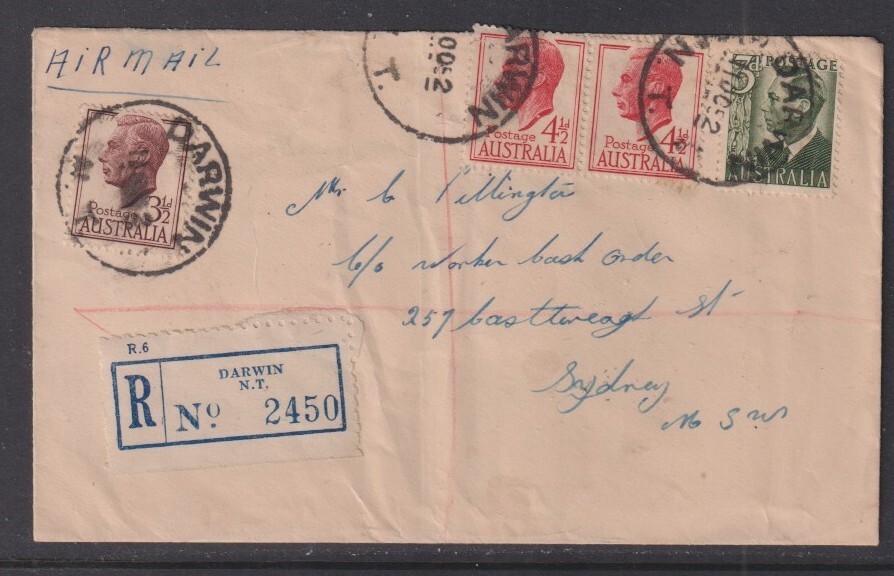 AIR MAIL
DARWIN
N. T.
Postage
3½d
AUSTRALIA
DARWIN
OC52
T.
Postage 4½d
AUSTRALIA
Postage 4½d
AUSTRALIA
DARWIN
OC52
T.
3d POSTAGE
AUSTRALIA
Mr C Pillington
C/o Worker Cash Order
257 Castlereagh St
Sydney
N S W
R.6
R
DARWIN
N.T.
No 2450